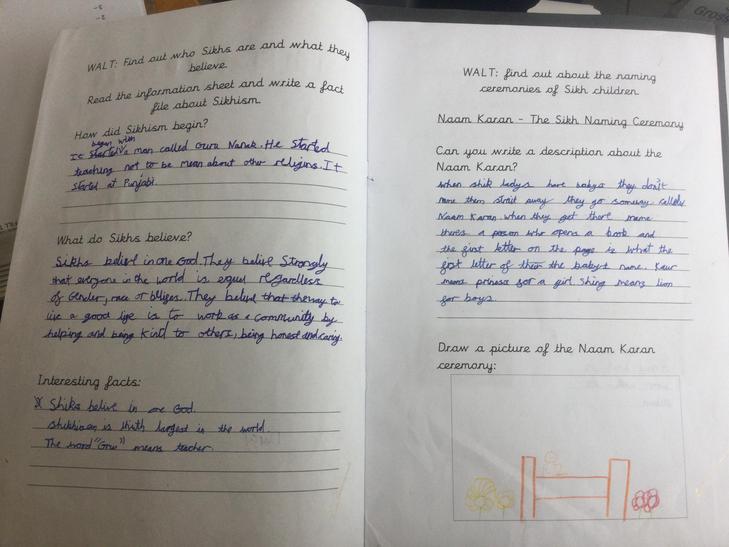 WALT: Find out who Sikhs are and what they
believe.
Read the information sheet and write a fact
file about Sikhism.
How did Sikhism begin?
began with
It started a man called Guru Nanak. He started
teaching not to be mean about other religins. It
started at Punjabi.
What do Sikhs believe?
Sikhs belief in one God. They belive Strongly
that everyone in the world is equal regardless
of Gender, race or bliges. They belive that the way to
live a good life is to work as a community by
helping and being Kind to others, being honest and caring.
Interesting facts:
Shiks belive in one God.
is largest in the world.
The word "Gru" means teacher.
WALT: find out about the naming
ceremonies of Sikh children.
Naam Karan - The Sikh Naming Ceremony
Can you write a description about the
Naam Karan?
when shik ladys have babys they don't
name them strait away they go someway called
Naam Karan. when they get there
theres a person who opens a book and
the first letter on the page is what the
first letter of the babys name. Kaur
means princess for a girl. Shing means lion
for boys.
Draw a picture of the Naam Karan
ceremony: